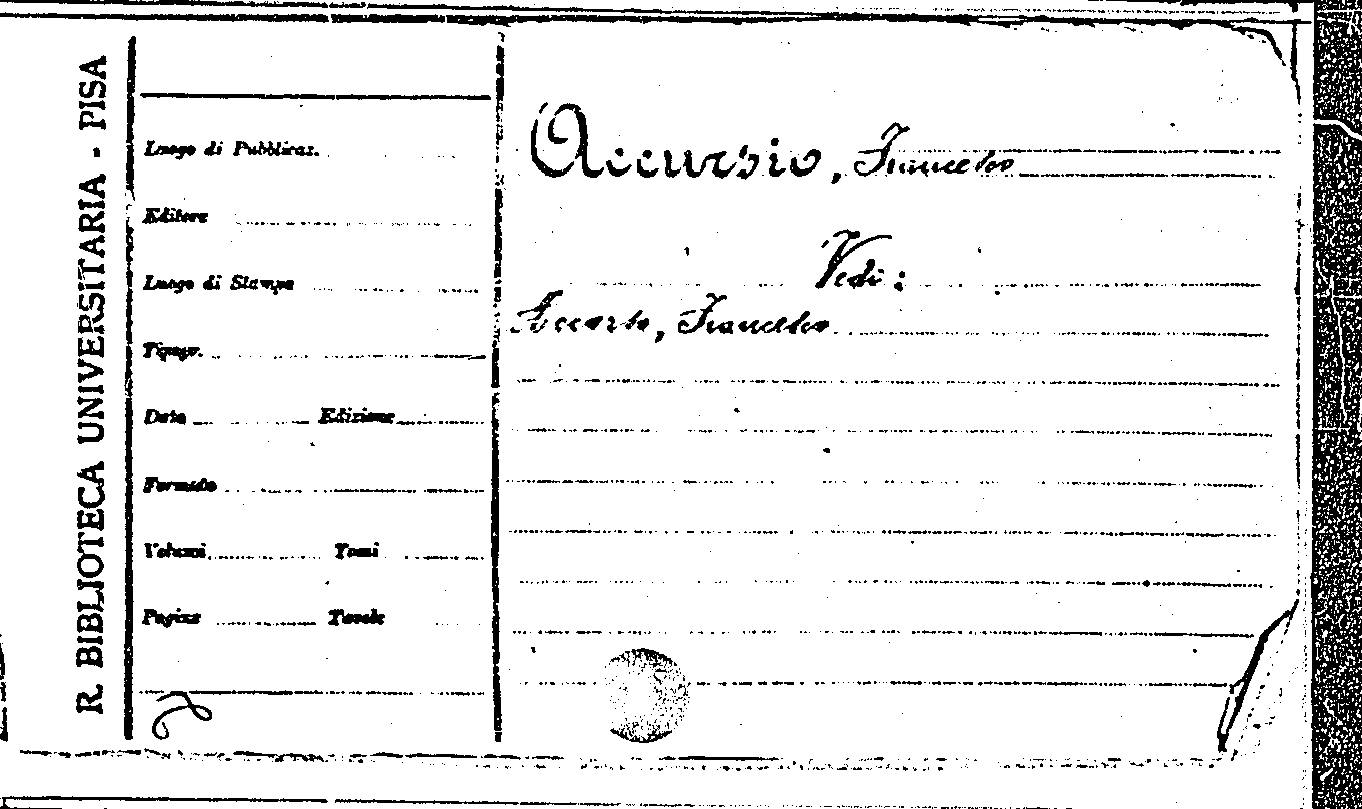 R. BIBLIOTECA UNIVERSITARIA - PISA
Luogo di Pubblicaz.
Editore
Luogo di Stampa
Tipogr.
Data Edizione
Formato
Volumi Tomi
Pagine Tavole
Accursio, Francesco
Vedi:
Accorso, Francesco